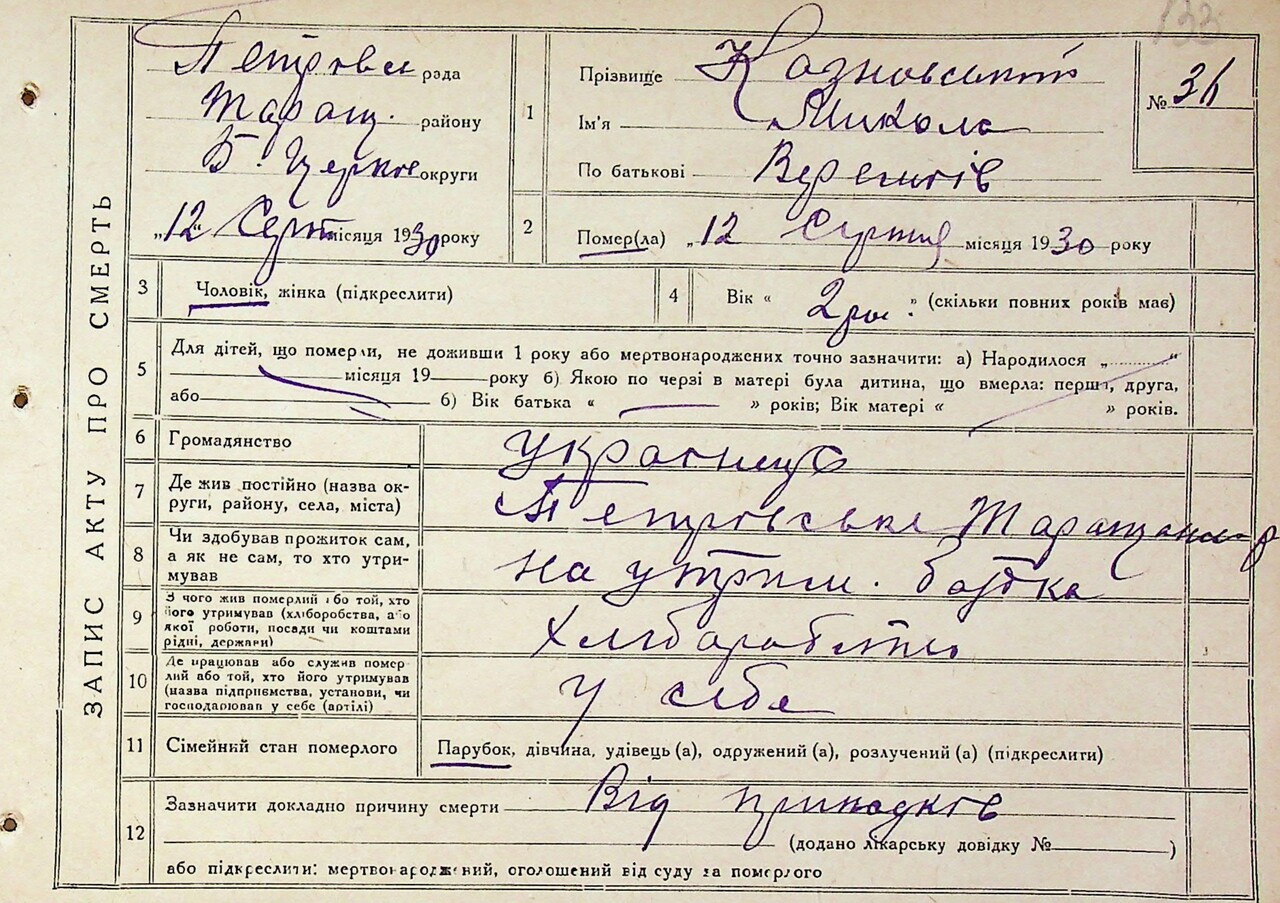 133
ЗАПИС АКТУ ПРО СМЕРТЬ
Петровск рада
Таращ. району
Б. Церков округи
„12“ Серп місяця 1930 року
1
Прізвище Козновський
Ім'я Микола
По батькові
№ 31
2
Помер(ла) „12 Серпня місяця 1930 року
3
Чоловік, жінка (підкреслити)
4
Вік « 2 рок. » (скільки повних років мав)
5
Для дітей, що померли, не доживши 1 року або мертвонароджених точно зазначити: а) Народилося „ “
місяця 19 року б) Якою по черзі в матері була дитина, що вмерла: перша, друга,
або б) Вік батька « » років; Вік матері « » років.
6
Громадянство
украинец
7
Де жив постійно (назва округи, району, села, міста)
с. Петровське Таращанс. р
8
Чи здобував прожиток сам,
а як не сам, то хто утри-
мував
на утрим. батька
9
З чого жив померлий або той, хто
його утримував (хліборобства, або
якої роботи, посади чи коштами
рідні, держави)
Хлібороб
10
Де працював або служив помер
лий або той, хто його утримував
(назва підприємства, установи, чи
господарював у себе (артілі)
у себе
11
Сімейний стан померлого
Парубок, дівчина, удівець (а), одружений (а), розлучений (а) (підкреслити)
12
Зазначити докладно причину смерти Від припадків
(додано лікарську довідку № )
або підкреслити: мертвонароджений, оголошений від суду за померлого